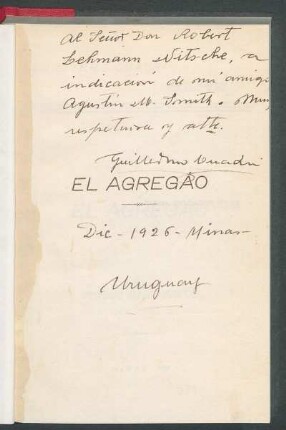 Al Señor Don Robert
Lehmann Nitsche, a
indicación de mi amigo
Agustín M. Smith. Muy
respetuosa y atte.
Guillermo Cuadri
EL AGREGÃO
Dic - 1926 - Minas
Uruguay